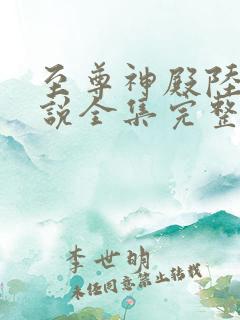 至尊神殿陆
说全集完整
李世明
未经同意禁止转载